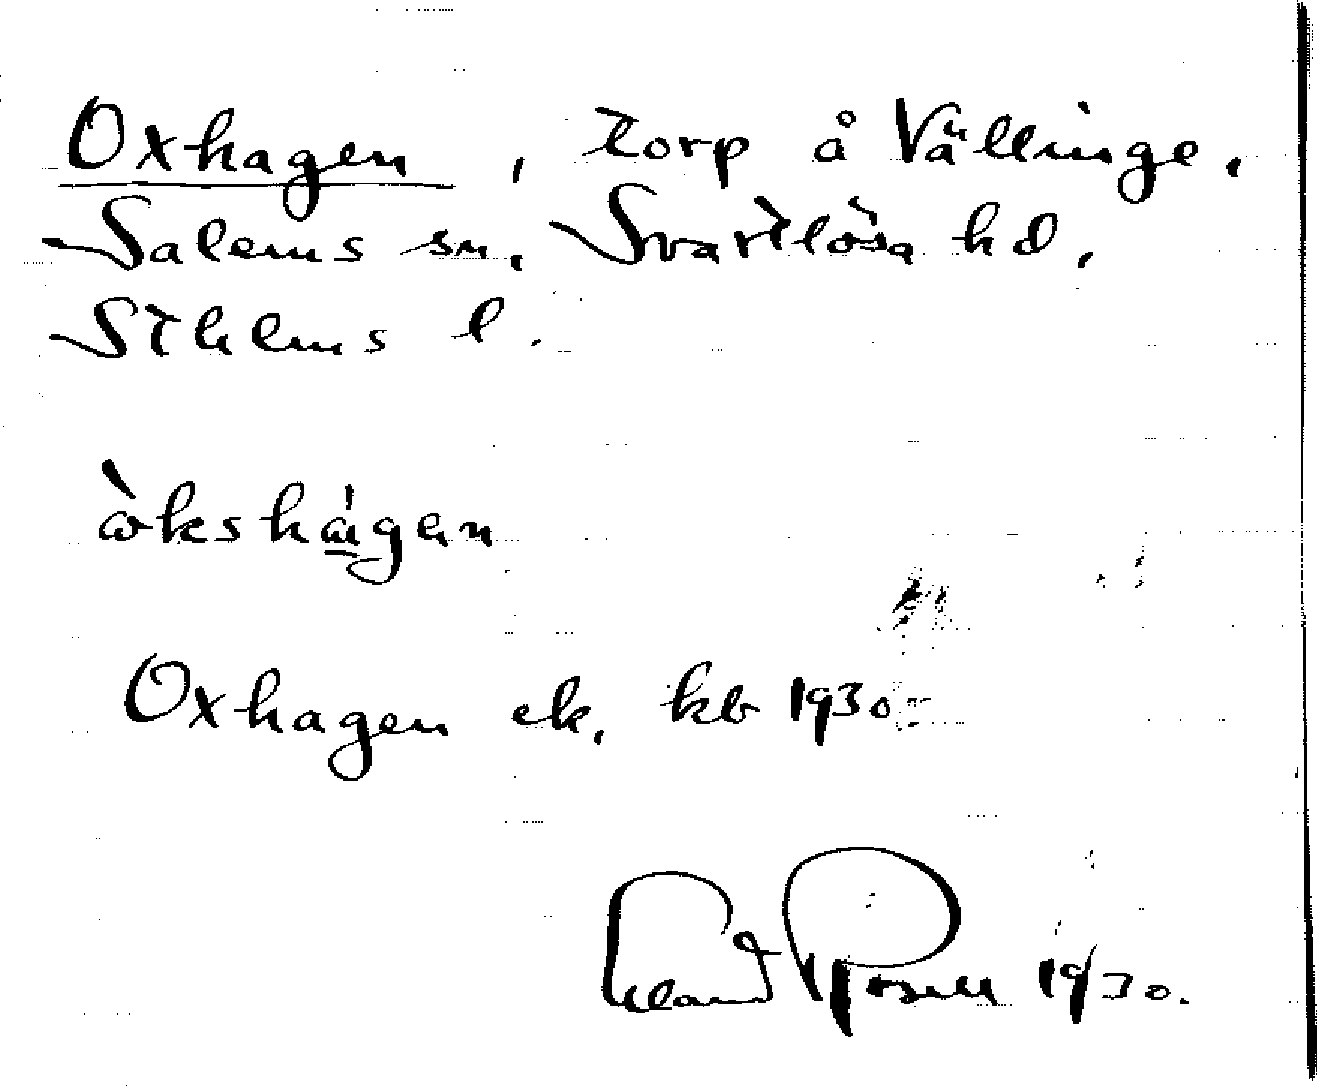 Oxhagen, torp å Vällinge,
Salems sn, Svartlösa hd,
Sthlms l.
Oxhagen ek, kb 1930
1930.